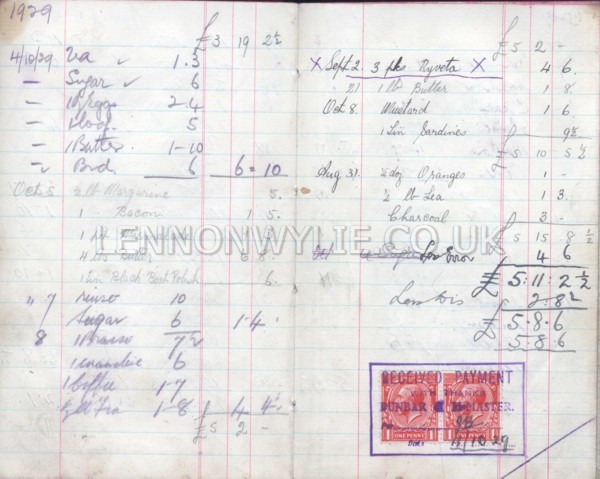 1929
£3 19 2½
4/10/29 Tea 1.3
— Sugar 6
— Eggs 2.4
— 1 Loaf 5
— 1 Butter 1-10
Bread 6 6=10
Oct 5 ½ lb Margarine 5.
1 Bacon 1 5.
1
4 lbs Butter 6 8.
1 tin Black Boot Polish 6.
" 7 Rinso 10
Sugar 6 1-4.
8 1 Brasso 7½
6
1 Coffee 1-7
1-8 1 4 4.
£5 2 -
£5 2 -
X Sept 2 3 pks Ryveta X 4 6.
21 1 lb Butter 1 8
Oct 8. Mustard 1 6.
1 Tin Sardines 9½
£5 10 5½
Aug 31. ½ doz Oranges 1 -
½ lb Tea 1 3.
Charcoal 3 -
£5 15 8½
Less Error 4 6
£5:11:2½
Less Dis 2:8½
£5.8.6
5.8.6
RECEIVED PAYMENT
WITH THANKS
DUNBAR McMASTER.
ONE PENNY ONE PENNY
11/10/29
LENNONWYLIE.CO.UK